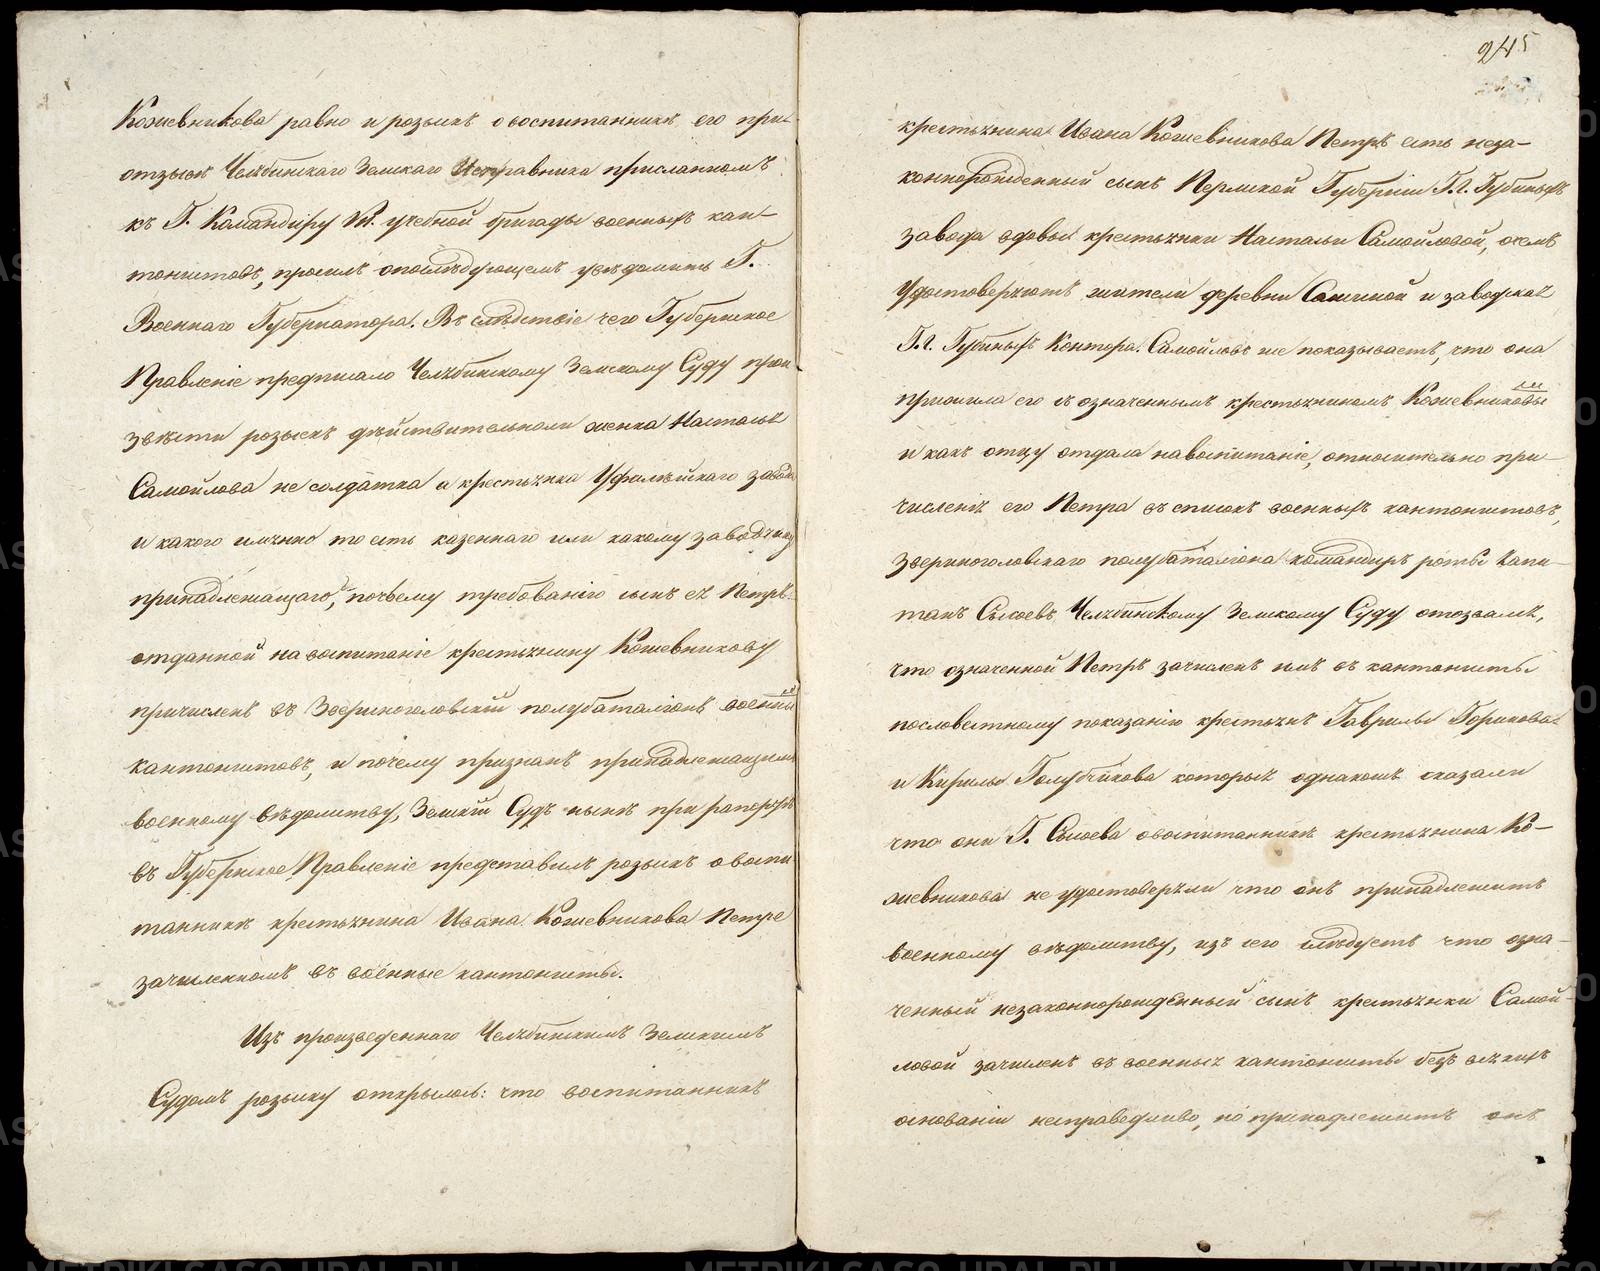 Кожевникова равно и розыскъ о воспитанникѣ его при
отзывѣ Челябинскаго Земскаго Исправника присланномъ
къ Г. Командиру VII. учебной бригады военныхъ кан-
тонистовъ, просилъ опослѣдующемъ увѣдомить Г.
Военнаго Губернатора. Въ слѣдствіе чего Губернское
Правленіе предписало Челябинскому Земскому Суду прои
звѣсти розыскъ дѣйствительноли оженка Насталья
Самойлова не солдатка а крестьянка Уфалѣйскаго завода
и какого имянно то есть казеннаго или какому заводчику
принадлежащаго, почьему требованію сынъ ея Петръ
отданной на воспитаніе крестьянину Кожевникову
причисленъ въ Звериноголовскій полубаталіонъ военныхъ
кантонистовъ, и почему признанъ принадлежащимъ
военному вѣдомству, Земскій Судъ нынѣ при рапортѣ
въ Губернское Правленіе представилъ розыскъ о воспи
танникѣ крестьянина Ивана Кожевникова Петре
зачисленномъ въ военные кантонисты.
Изъ произведеннаго Челябинскимъ Земскимъ
Судомъ розыску открылось: что воспитанникъ
245
крестьянина Ивана Кожевникова Петръ есть неза-
коннорожденный сынъ Пермской Губерніи Г.г. Губиныхъ
завода вдовы крестьянки Настальи Самойловой, очемъ
Удостоверяютъ жители деревни Сашиной и заводская
Г.г. Губиныхъ Контора. Самойлова же показываетъ, что она
прижила его съ означеннымъ крестьяниномъ Кожевниковымъ
и какъ отцу отдала навоспитаніе, относительно при-
численія его Петра въ списокъ военныхъ кантонистовъ,
Звериноголовскаго полубаталіона командиръ роты Капи-
танъ Сысоевъ Челябинскому Земскому Суду отозвался,
что означенной Петръ зачисленъ имъ въ кантонисты
пословестному показанію крестьянъ Гаврилы Горикова
и Кирилы Голубчикова которыя однакожъ сказали
что они Г. Сысоева овоспитанникѣ крестьянина Ко-
жевникова не удостоверяли что онъ принадлежитъ
военному вѣдомству, изъ сего слѣдуетъ что озна-
ченный незаконнорожденный сынъ крестьянки Самой-
ловой зачисленъ въ военныя кантонисты безъ всякихъ
основаніи несправедливо, но принадлежитъ онъ